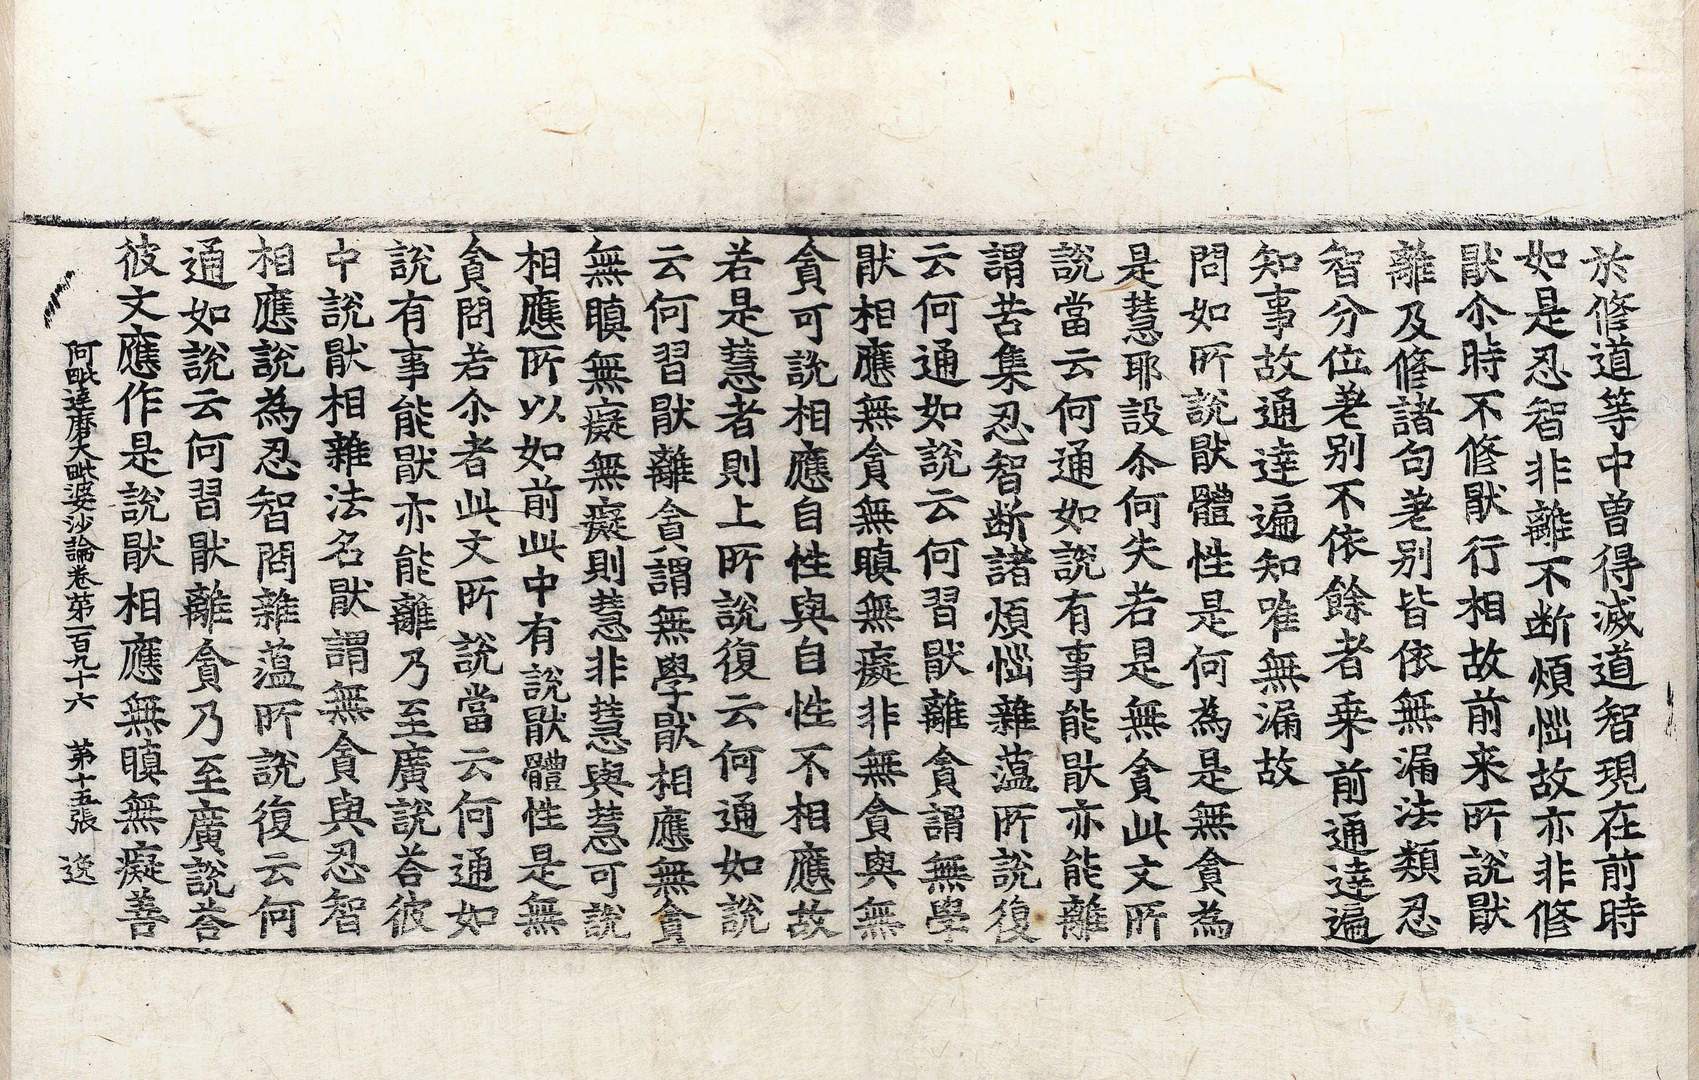 於修道等中曾得滅道智現在前時
如是忍智非離不断煩惱故亦非修
猒尒時不修猒行相故前来所說猒
離及修諸句差别皆依無漏法類忍
智分位差别不依餘者乗前通達遍
知事故通達遍知唯無漏故
問如所說猒體性是何為是無貪為
是慧耶設尒何失若是無貪此文所
說當云何通如說有事能猒亦能離
謂苦集忍智断諸煩惱雜蕰所說復
云何通如說云何習猒離貪謂無學
猒相應無貪無瞋無癡非無貪與無
貪可說相應自性與自性不相應故
若是慧者則上所說復云何通如說
云何習猒離貪謂無學猒相應無貪
無瞋無癡無癡則慧非慧與慧可說
相應所以如前此中有說猒體性是無
貪問若尒者此文所說當云何通如
說有事能猒亦能離乃至廣說荅彼
中說猒相雜法名猒謂無貪與忍智
相應說為忍智問雜蕰所說復云何
通如說云何習猒離貪乃至廣說荅
彼文應作是說猒相應無瞋無癡善
阿毗達磨大毗婆沙論卷第一百九十六　第十五張　逸